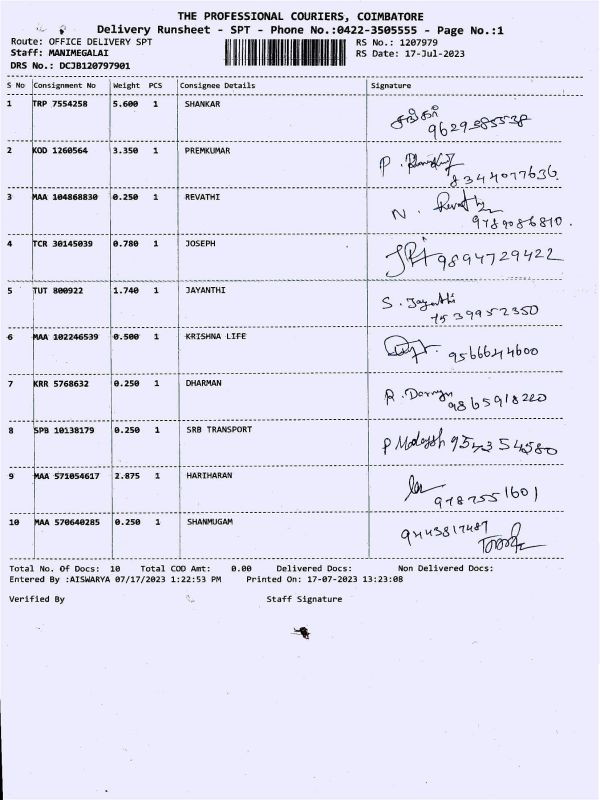 THE PROFESSIONAL COURIERS, COIMBATORE
Delivery Runsheet - SPT - Phone No.:0422-3505555 - Page No.:1
Route: OFFICE DELIVERY SPT RS No.: 1207979
Staff: MANIMEGALAI RS Date: 17-Jul-2023
DRS No.: DCJB120797901
S No Consignment No Weight PCS Consignee Details Signature
1 TRP 7554258 5.600 1 SHANKAR
சங்கர்
2 KOD 1260564 3.350 1 PREMKUMAR
P.
8344077636.
3 MAA 104868830 0.250 1 REVATHI
N. Revathi
9789086810.
4 TCR 30145039 0.780 1 JOSEPH
9894729422
5 TUT 800922 1.740 1 JAYANTHI
S. Jayanthi
7539952350
6 MAA 102246539 0.500 1 KRISHNA LIFE
9566644600
7 KRR 5768632 0.250 1 DHARMAN
R.
9865918220
8 SPB 10138179 0.250 1 SRB TRANSPORT
P Madesh
9 MAA 571054617 2.875 1 HARIHARAN
9787551601
10 MAA 570640285 0.250 1 SHANMUGAM
9443817487
Total No. Of Docs: 10 Total COD Amt: 0.00 Delivered Docs: Non Delivered Docs:
Entered By :AISWARYA 07/17/2023 1:22:53 PM Printed On: 17-07-2023 13:23:08
Verified By Staff Signature